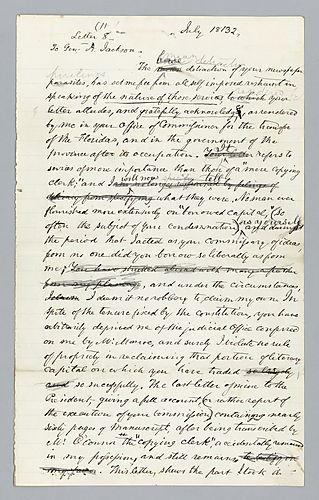 (11.
Letter 8. July 1832.
To Gen. A. Jackson.
The detraction of your newspaper
parasites, has set me free from all self imposed restraint in
speaking of the nature of those services to which your
letter alludes, and gratefully acknowledges, as rendered
by me in your Office of Commissioner for the transfer
of the Floridas, and in the government of the
Province after its occupation. refers to
services of more importance than those of a "mere copying
clerk;" and I will now specify
what they were. No man ever
flourished more extensively on "borrowed capital," (so
often the subject of your condemnation) as during
the period that I acted as your commissary of ideas
from no one did you borrow so liberally as from
me;
and under the circumstances,
I deem it no robbery to claim my own. In
spite of the tenure fixed by the Constitution, you have
arbitrarily deprived me of the judicial Office conferred
on me by Mr. Monroe, and surely I violate no rule
of propriety in reclaiming that portion of literary
capital on which you have traded
so successfully. The last letter of mine to the
President, giving a full account, or rather report of
the execution of your commission, containing nearly
sixty pages of Manuscript, after being transcribed by
Mr. O'Connor the "copying clerk" accidentally remained
in my possession, and still remains
This letter, shews the part I took in